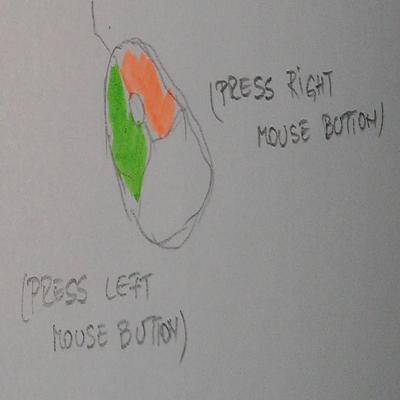 (PRESS RIGHT
MOUSE BUTTON)
(PRESS LEFT
MOUSE BUTTON)